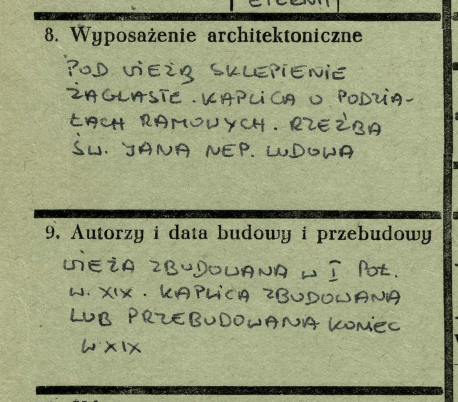 8. Wyposażenie architektoniczne
POD WIEŻĄ SKLEPIENIE
ŻAGLASTE. KAPLICA O PODZIA-
ŁACH RAMOWYCH. RZEŹBA
ŚW. JANA NEP. LUDOWA
9. Autorzy i data budowy i przebudowy
WIEŻA ZBUDOWANA W I POŁ.
W. XIX. KAPLICA ZBUDOWANA
LUB PRZEBUDOWANA KONIEC
W XIX